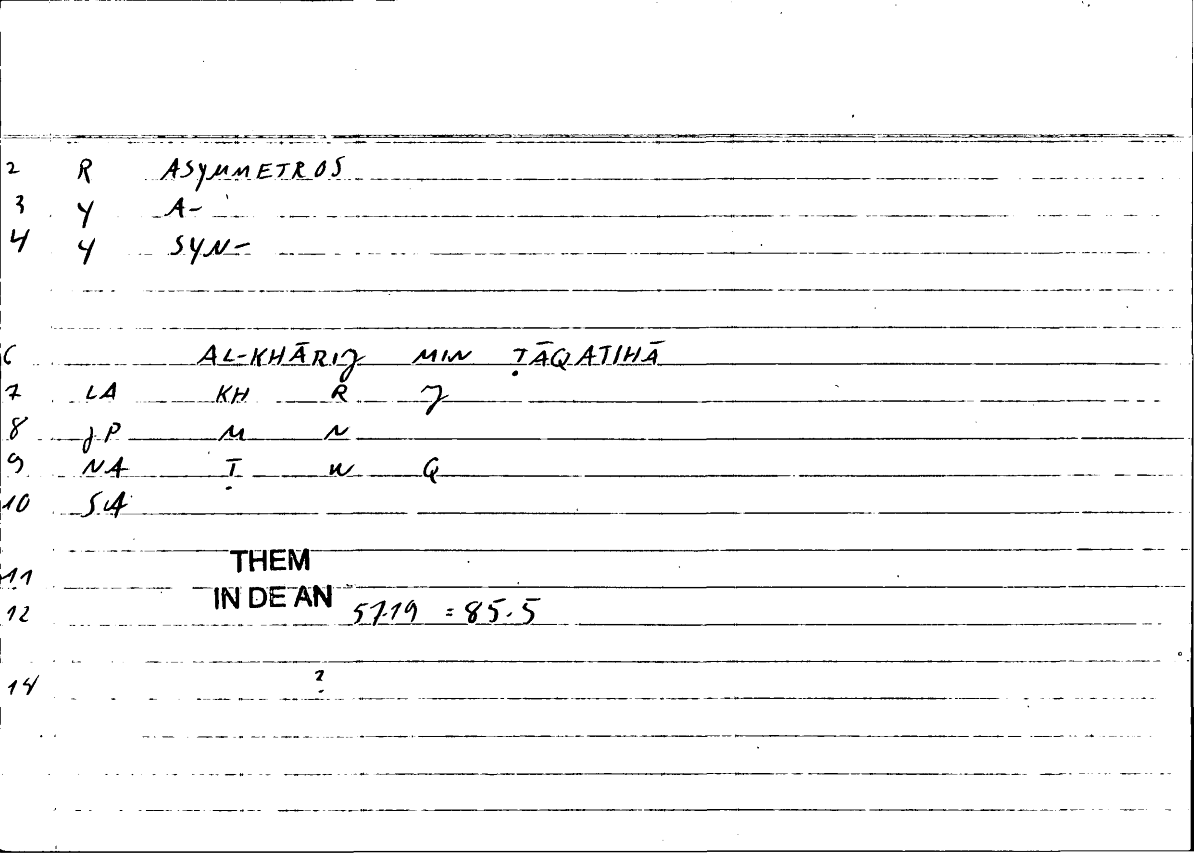 2 R ASYMMETROS
3 Y A-
4 Y SYN-
6 AL-KHĀRIJ MIN ṬĀQATIHĀ
7 LA KH R J
8 JP M N
9 NA Ṭ W Q
10 SA
11 THEM
12 IN DE AN 57.19 = 85.5
14 ?